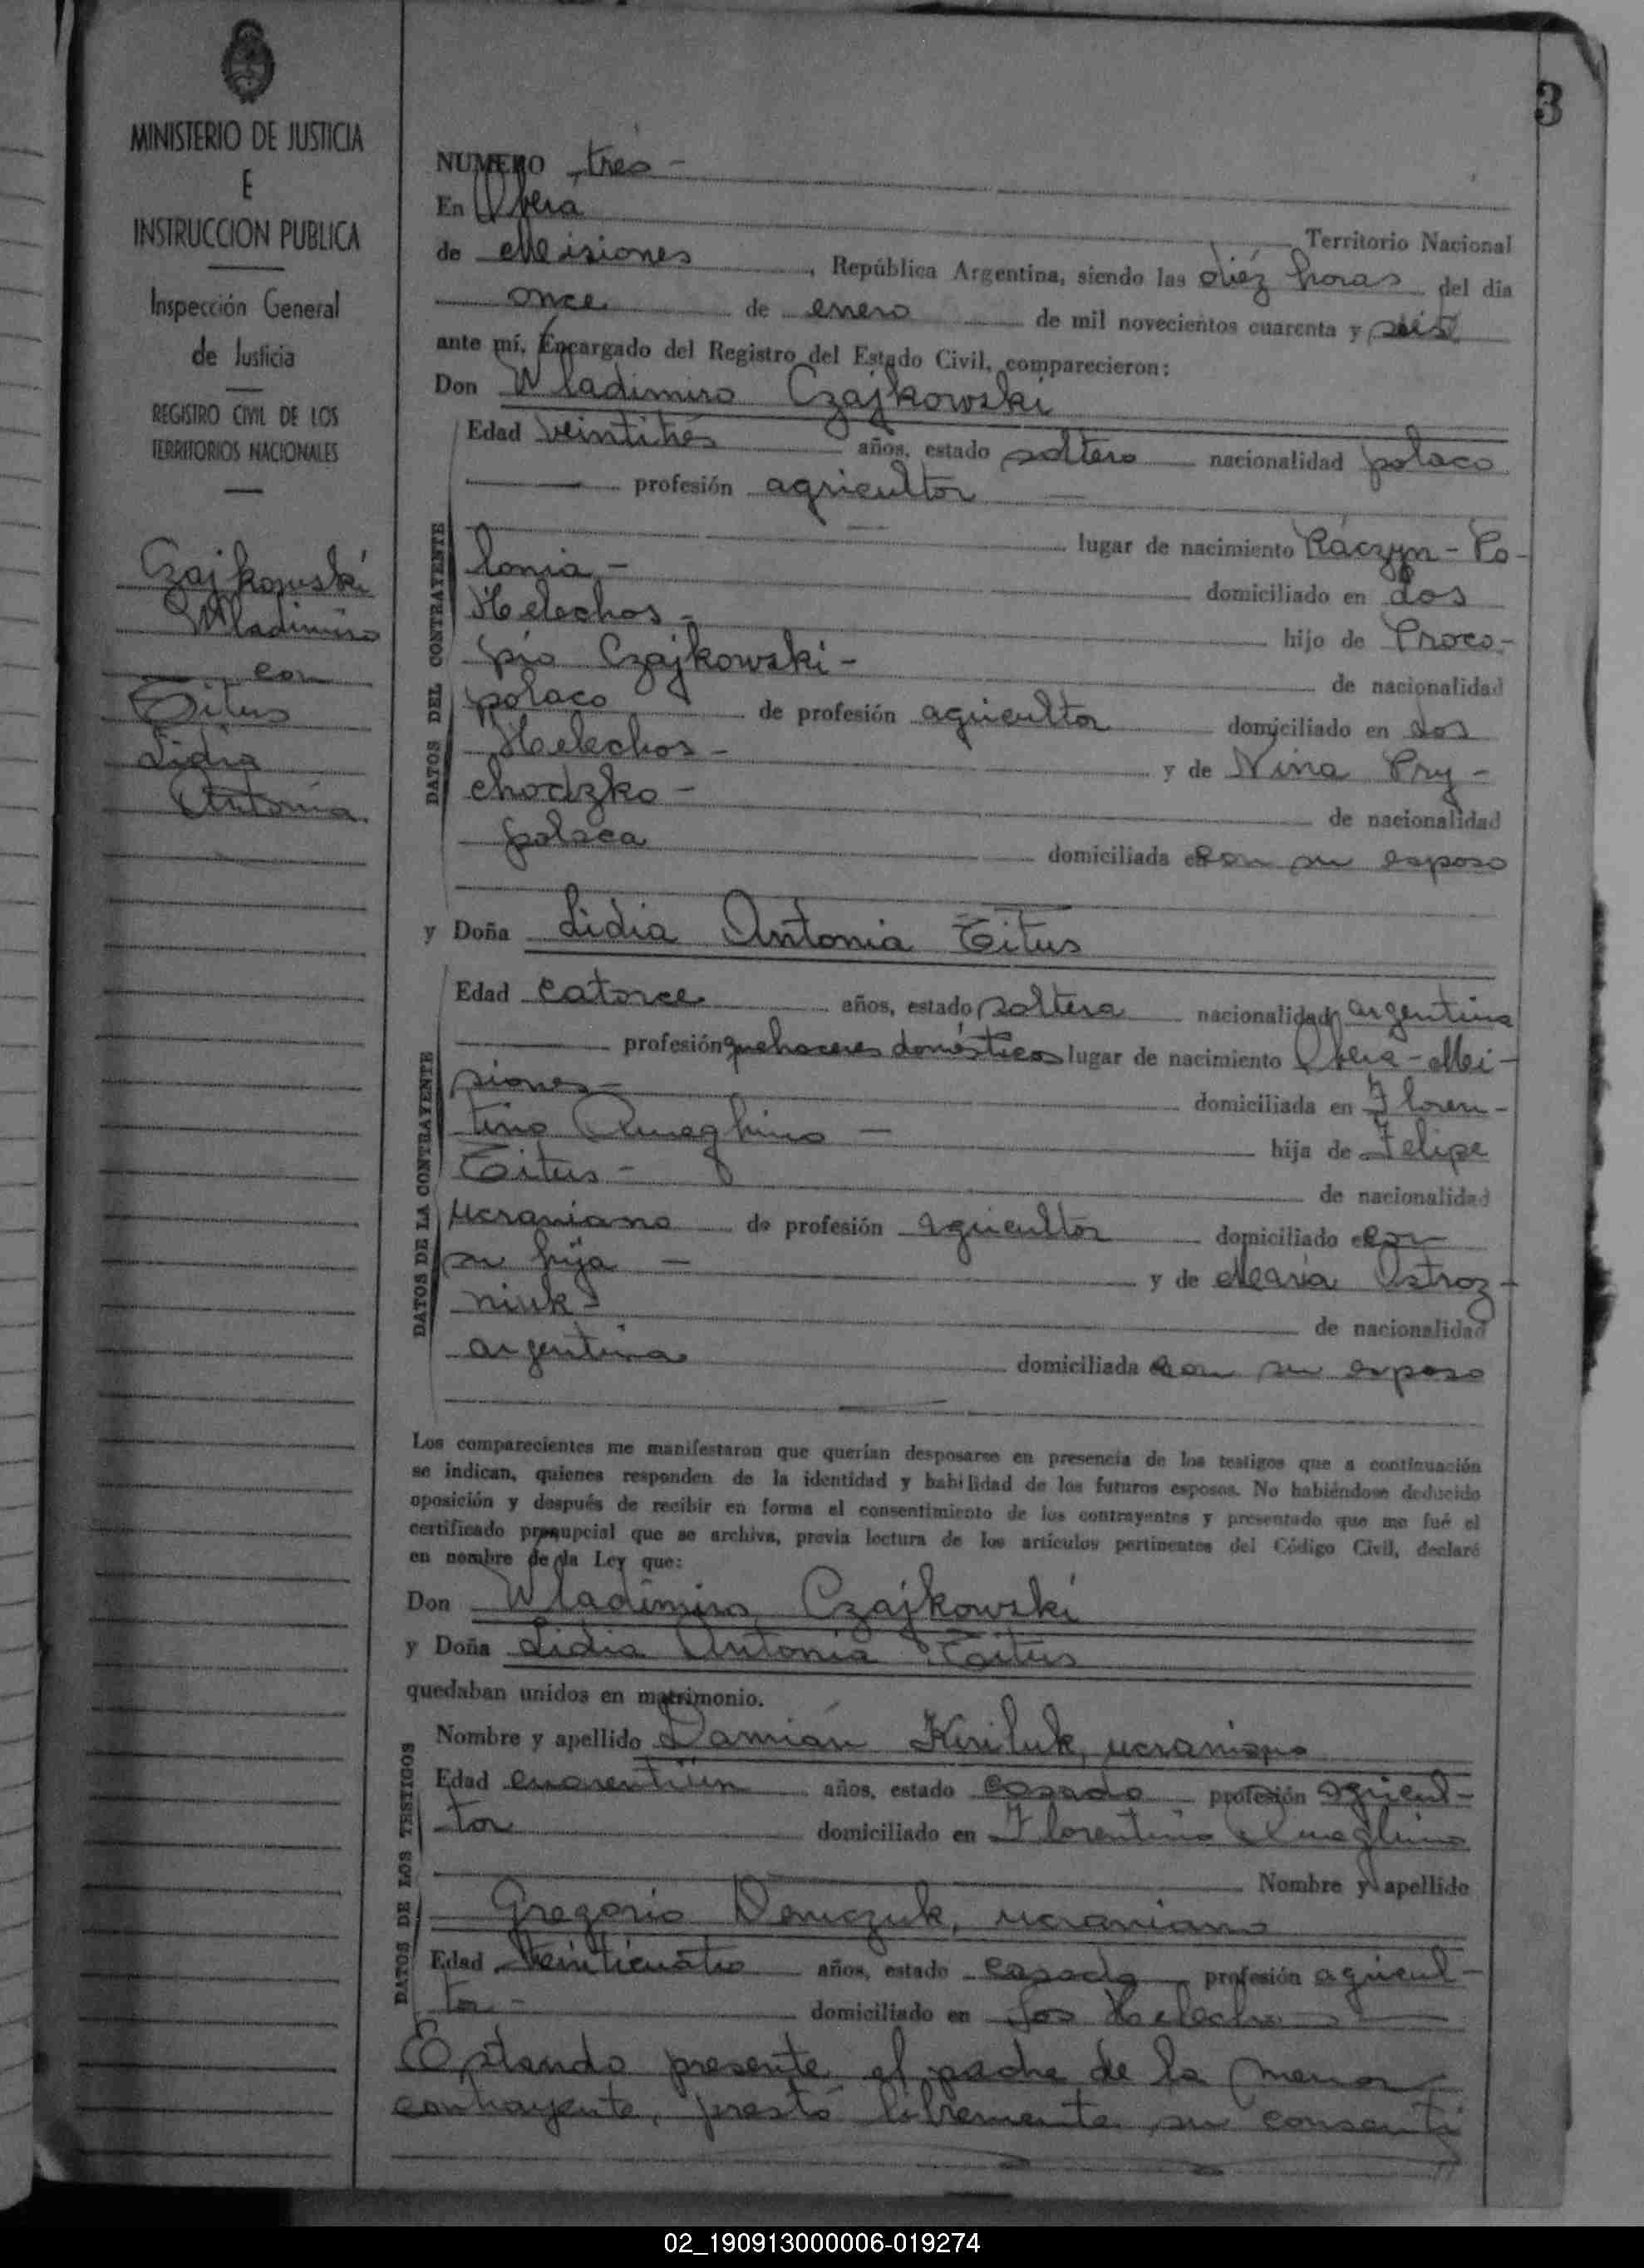 3
MINISTERIO DE JUSTICIA
E
INSTRUCCION PUBLICA
Inspección General
de Justicia
REGISTRO CIVIL DE LOS
TERRITORIOS NACIONALES
Czajkowski
Wladimiro
con
Titus
Lidia
Antonia
NUMERO tres -
En Oberá
Territorio Nacional
de Misiones, República Argentina, siendo las diéz horas del día
once de enero de mil novecientos cuarenta y seis
ante mí, Encargado del Registro del Estado Civil, comparecieron:
Don Wladimiro Czajkowski
Edad veintitrés años, estado soltero nacionalidad polaco
profesión agricultor
lugar de nacimiento Ráczyn - Po-
lonia - domiciliado en dos
Helechos - hijo de Proco-
pio Czajkowski - de nacionalidad
polaco de profesión agricultor domiciliado en dos
Helechos - y de Nina Pry-
chodzko - de nacionalidad
polaca domiciliada con su esposo
y Doña Lidia Antonia Titus
Edad catorce años, estado soltera nacionalidad argentina
profesión quehaceres domésticos lugar de nacimiento Oberá - Mi-
siones - domiciliada en Floren-
tino Ameghino - hija de Felipe
Titus - de nacionalidad
ucraniano de profesión agricultor domiciliado con
su hija - y de María Ostroz-
niuk - de nacionalidad
argentina domiciliada con su esposo
Los comparecientes me manifestaron que querían desposarse en presencia de los testigos que a continuación
se indican, quienes responden de la identidad y habilidad de los futuros esposos. No habiéndose deducido
oposición y después de recibir en forma el consentimiento de los contrayentes y presentado que me fué el
certificado prenupcial que se archiva, previa lectura de los artículos pertinentes del Código Civil, declaré
en nombre de la Ley que:
Don Wladimiro Czajkowski
y Doña Lidia Antonia Titus
quedaban unidos en matrimonio.
Nombre y apellido Damián Kiriluk, ucraniano
Edad cuarentiún años, estado casado profesión agricul-
tor domiciliado en Florentino Ameghino
Nombre y apellido
Gregorio Demczuk, ucraniano
Edad veinticuatro años, estado casado profesión agricul-
tor - domiciliado en Los Helechos
Estando presente el padre de la menor
contrayente, prestó libremente su consenti
DATOS DEL CONTRAYENTE
DATOS DE LA CONTRAYENTE
DATOS DE LOS TESTIGOS
02_190913000006-019274